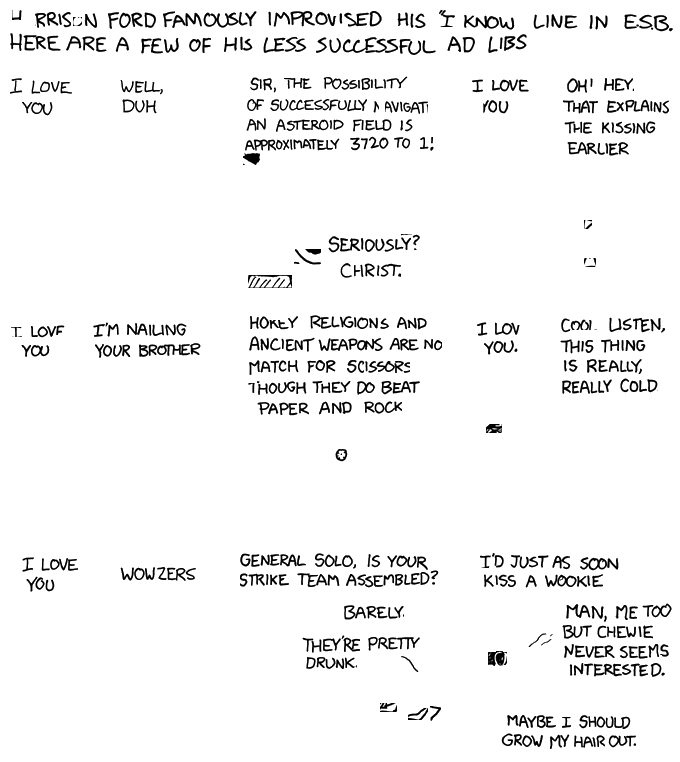 RRISON FORD FAMOUSLY IMPROVISED HIS "I KNOW LINE IN ESB.
HERE ARE A FEW OF HIS LESS SUCCESSFUL AD LIBS
I LOVE
YOU
WELL,
DUH
SIR, THE POSSIBILITY
OF SUCCESSFULLY NAVIGATI
AN ASTEROID FIELD IS
APPROXIMATELY 3720 TO 1!
SERIOUSLY?
CHRIST.
I LOVE
YOU
OH! HEY.
THAT EXPLAINS
THE KISSING
EARLIER
I LOVE
YOU
I'M NAILING
YOUR BROTHER
HOKEY RELIGIONS AND
ANCIENT WEAPONS ARE NO
MATCH FOR SCISSORS
THOUGH THEY DO BEAT
PAPER AND ROCK
I LOV
YOU.
COOL. LISTEN,
THIS THING
IS REALLY,
REALLY COLD
I LOVE
YOU
WOWZERS
GENERAL SOLO, IS YOUR
STRIKE TEAM ASSEMBLED?
BARELY.
THEY'RE PRETTY
DRUNK.
I'D JUST AS SOON
KISS A WOOKIE
MAN, ME TOO
BUT CHEWIE
NEVER SEEMS
INTERESTED.
MAYBE I SHOULD
GROW MY HAIR OUT.